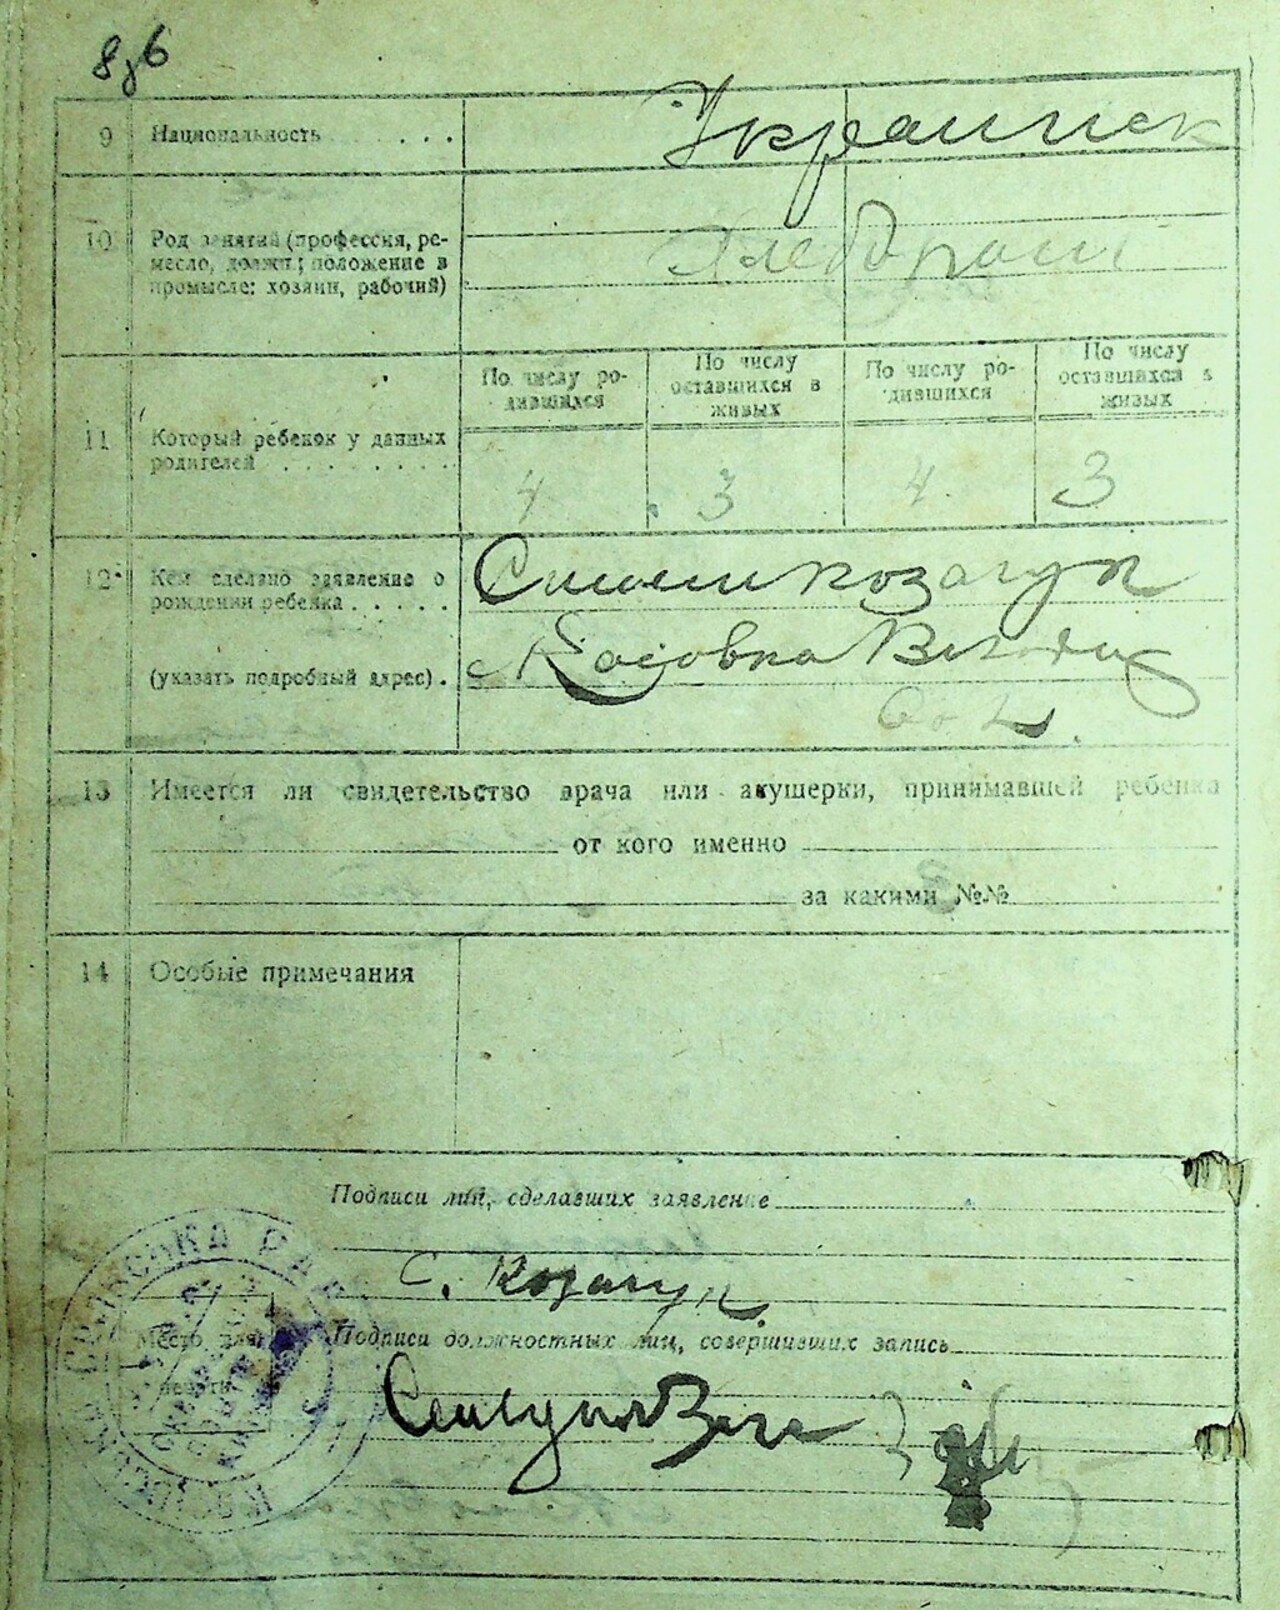 9 Национальность . . . Украинск
10 Род занятий (профессия, ре-
месло, должн; положение в
промысле: хозяин, рабочий)
Хлебороб
По числу ро-
дившихся
По числу
оставшихся в
живых
По числу ро-
дившихся
По числу
оставшихся в
живых
11 Который ребенок у данных
родителей . . . . . . . .
4 3 4 3
12 Кем сделано заявление о
рождении ребенка . . . . .
(указать подробный адрес) .
Козачук
с Косовка
13 Имеется ли свидетельство врача или акушерки, принимавшей ребенка
от кого именно
за какими №№
14 Особые примечания
Подписи лиц, сделавших заявление
С. Козачук
Место для
печати
Подписи должностных лиц, совершивших запись